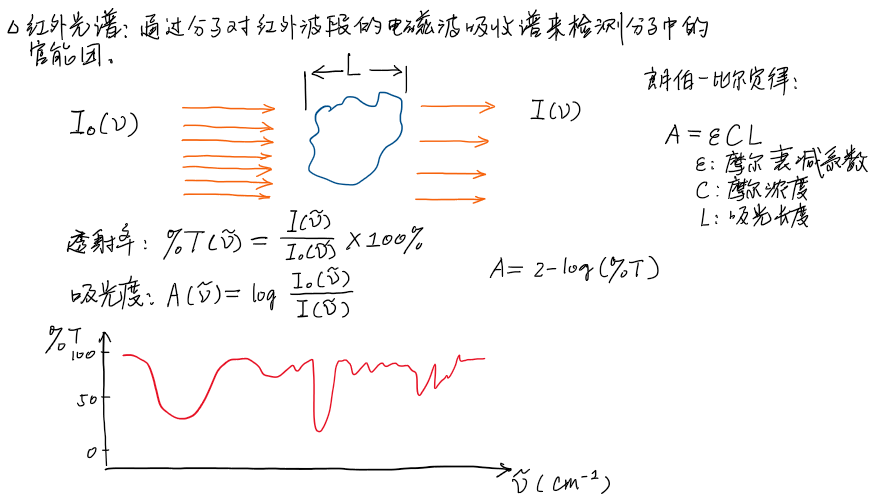 △ 红外光谱: 通过分子对红外波段的电磁波吸收谱来检测分子中的
官能团。
L
朗伯-比尔定律:
I₀(ν)
I(ν)
A = εCL
ε: 摩尔衰减系数
C: 摩尔浓度
L: 吸光长度
透射率: %T(ν̃) = I(ν̃) / I₀(ν̃) × 100%
A = 2-log(%T)
吸光度: A(ν̃) = log I₀(ν̃) / I(ν̃)
%T
100
50
0
ν̃ (cm⁻¹)